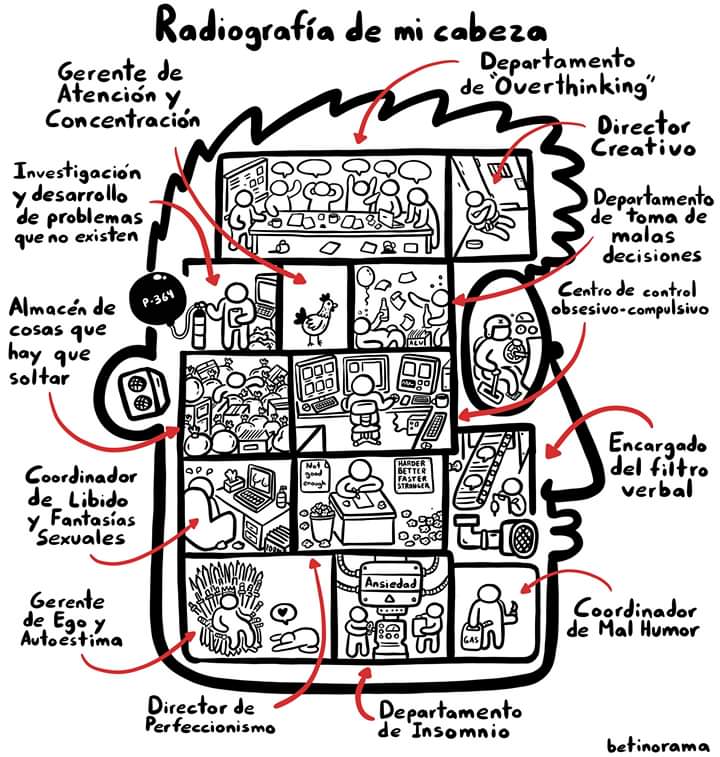 Radiografía de mi cabeza
Gerente de
Atención y
Concentración
Departamento
de "Overthinking"
Director
Creativo
Investigación
y desarrollo
de problemas
que no existen
Departamento
de toma de
malas
decisiones
P-364
Centro de control
obsesivo-compulsivo
Almacén de
cosas que
hay que
soltar
ACV
Encargado
del filtro
verbal
Coordinador
de Libido
y Fantasías
Sexuales
Not
good
enough
HARDER
BETTER
FASTER
STRONGER
Gerente
de Ego y
Autoestima
Ansiedad
GAS
Coordinador
de Mal Humor
Director de
Perfeccionismo
Departamento
de Insomnio
betinorama